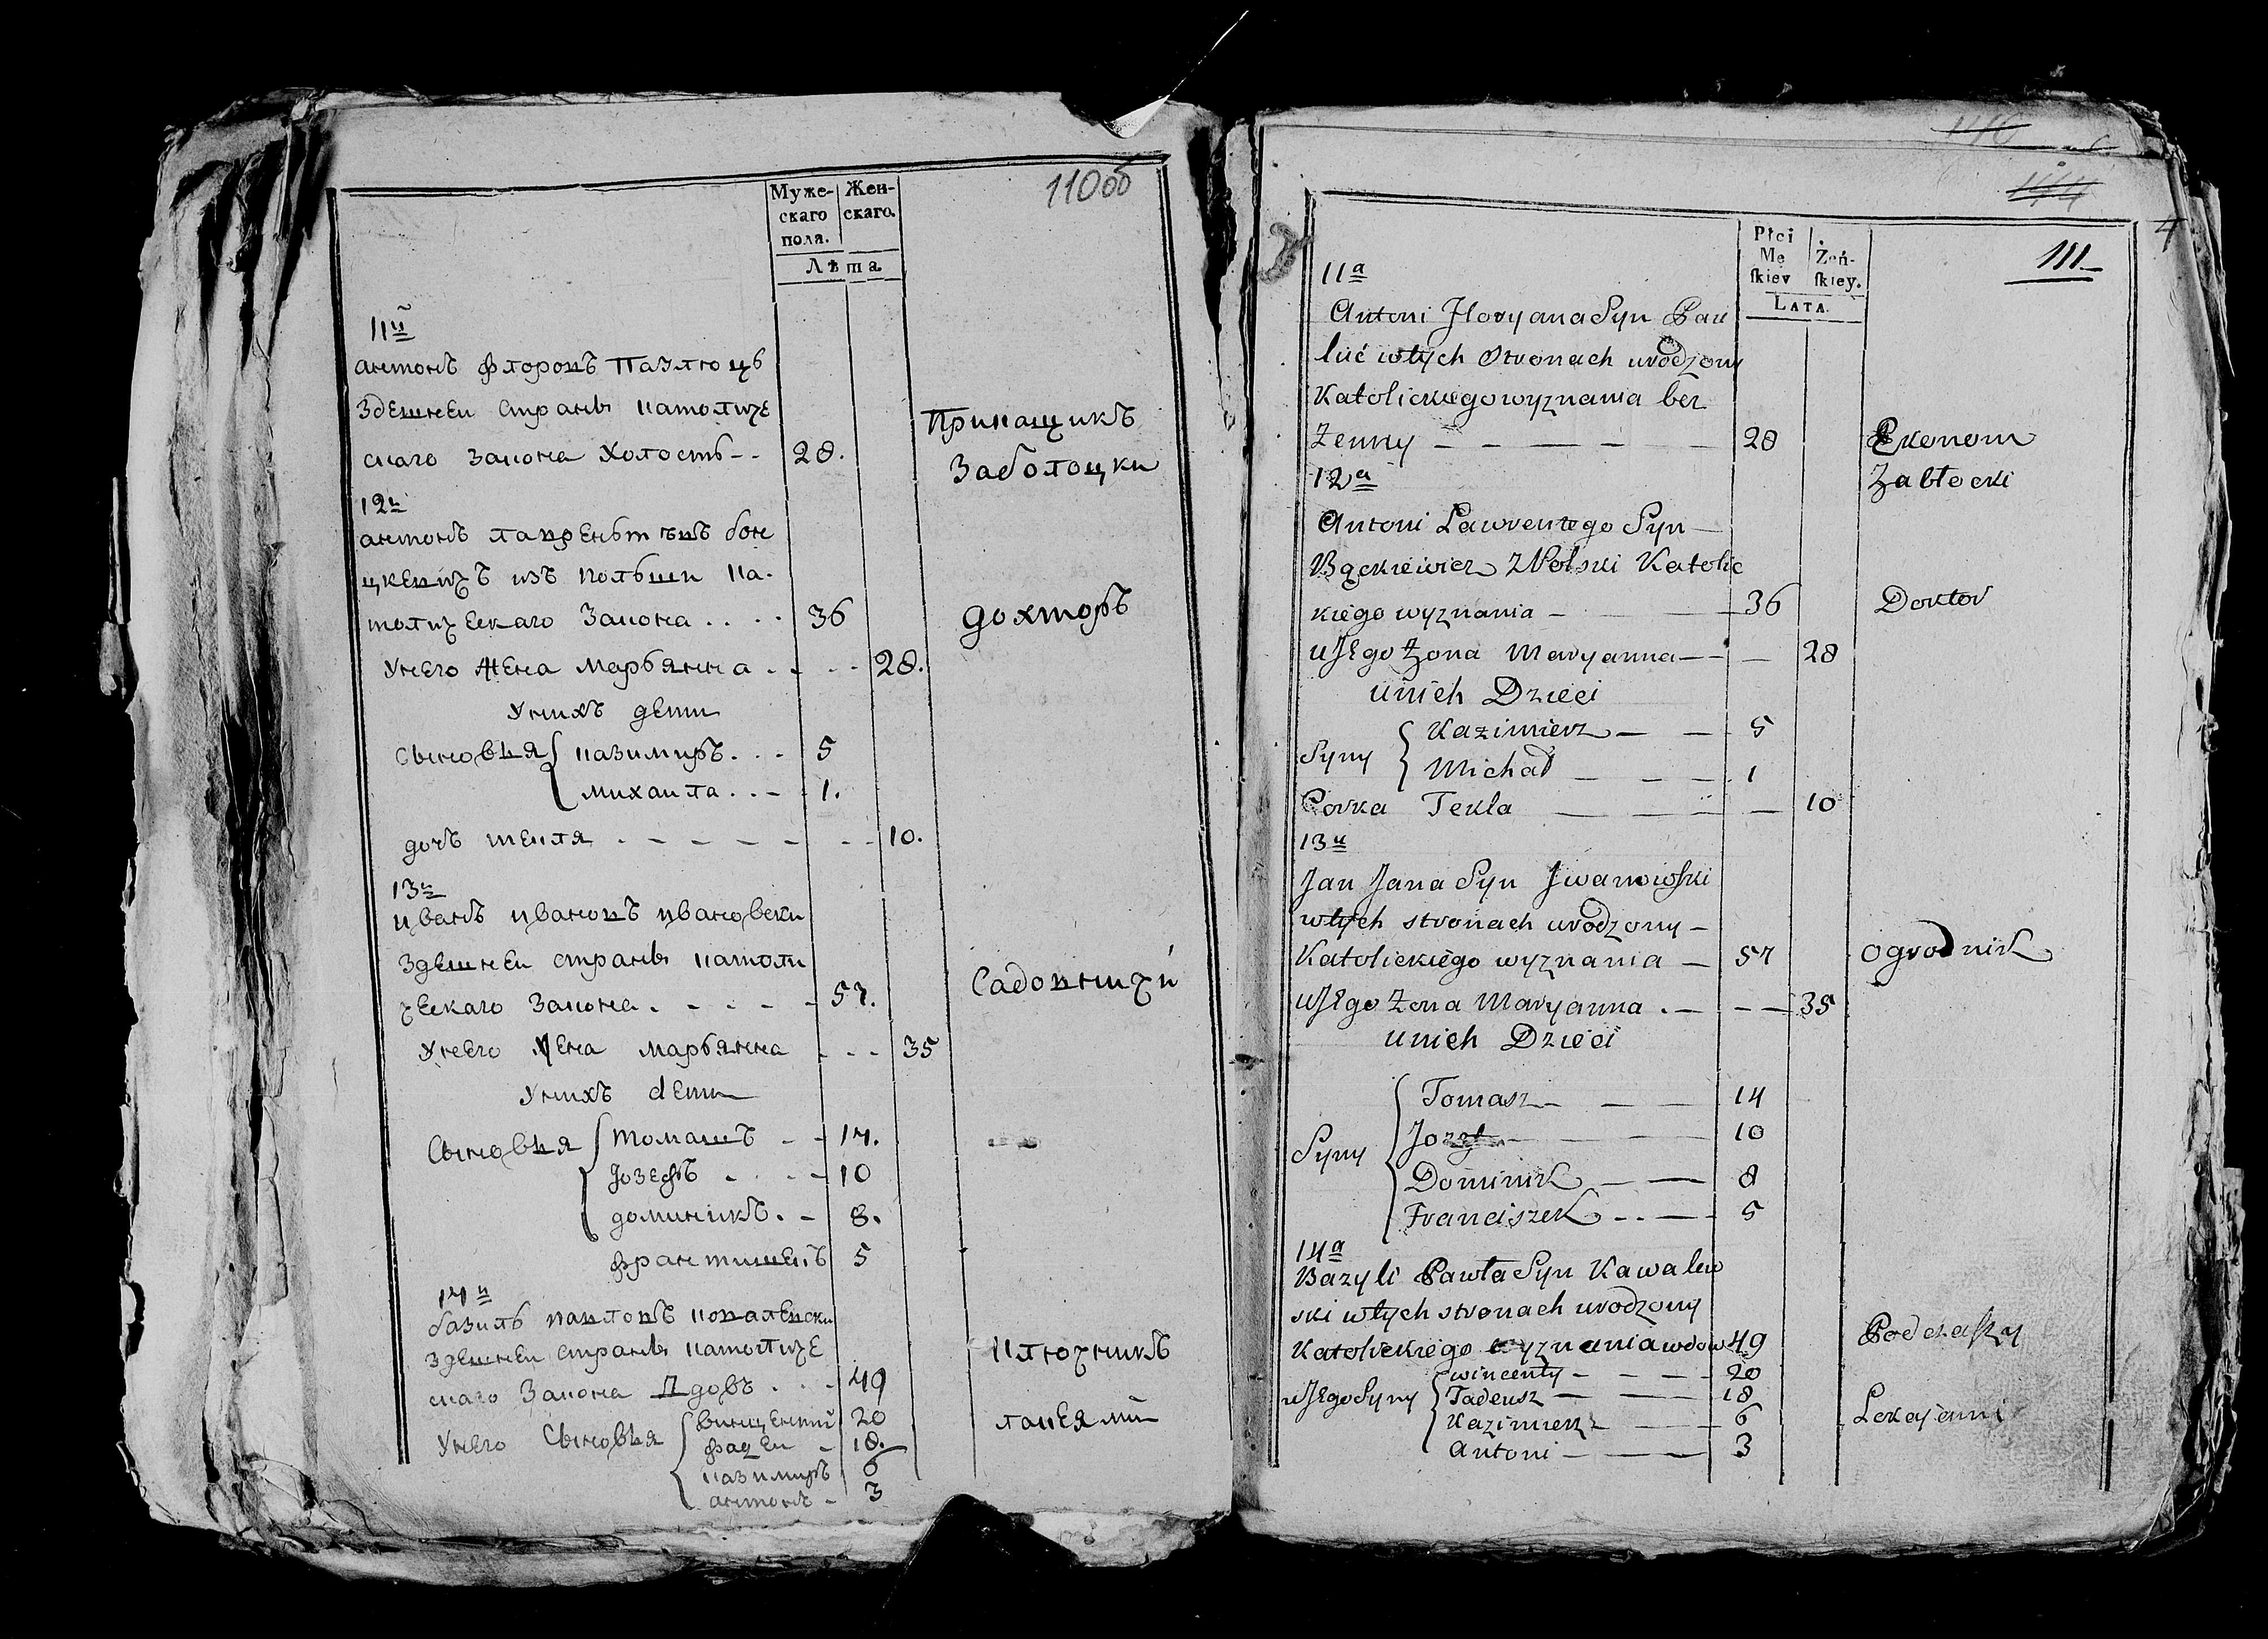 110об
Муже-
скаго
поля.
Жен-
скаго.
Лѣта
11й
антонъ флоровъ Павлюць
здешнеи страны католиче
скаго закона холостъ - - 28.
Прикащикъ
Заболоцки
12й
антонъ лаврентьевъ бон
цкевичъ изъ польши ка-
толическаго закона . . . . 36
дохторъ
унего жена марьянна . - - - 28.
унихъ дети
сыновья { казимиръ . . - 5
михаила . . - - 1.
дочь текля . - - - - - - - 10.
13й
иванъ ивановъ ивановски
здешнеи страны католи
ческаго закона . - - - - - 57.
Садовничи
унего жена марьянна - - - 35
унихъ дети
сыновья { томашъ - - 14.
Іозефъ . . - - 10
доминикъ . - 8.
франтишекъ 5
14й
базиль павловъ ковалевски
здешнеи страны католиче
скаго закона вдовъ . . - 49
ключникъ
унего сыновья { винцентий 20
фадеи - 18.
казимиръ 6
антонъ - 3
лакеями
4
111
Płci
Mę
skiey
Żeń-
skiey.
LATA.
11a
Antoni Floryana Syn Paw
luć wtych stronach urodzony
Katolickiego wyznania bez
Zenny — — — — — 28
Ekonom
12a
Zabłocki
Antoni Lawrentego Syn —
Bąckiewicz Z Polski Katolic
kiego wyznania — — 36
Doktor
uJEgo Zona Maryanna — — — 28
unich Dzieci
Syny { Kazimierz — — 5
Michał — — — 1
Corka Tekla — — — — 10
13a
Jan Jana Syn Jwanowski
wtych stronach urodzony —
Katolickiego wyznania — 57
Ogrodnik
uJEgo Zona Maryanna . — — — 35
unich Dzieci
Syny { Tomasz — — — 14
Jozef — — — 10
Dominik — — 8
Franciszek - - — — 5
14a
Bazyli Pawła Syn Kawalew
ski wtych stronach urodzony
Katolickiego wyznania wdow 49
Podczaszy
uJEgo Syny { wincenty - - - - 20
Tadeusz — — — 18
Kazimierz — — 6
Antoni — — — 3
Lokajami